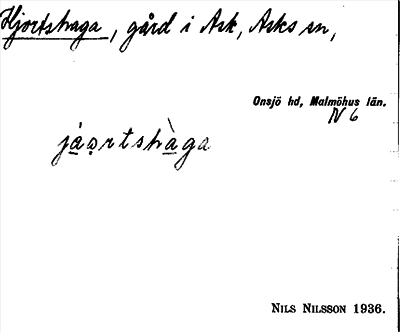 Hjortshaga, gård i Ask, Asks sn,
Onsjö hd, Malmöhus län.
N 6
jàọrtshàga
Nils Nilsson 1936.